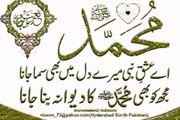 محمد
اے عشقِ نبی میرے دل میں بھی سما جانا
مجھ کو بھی محمد ﷺ کا دیوانہ بنا جانا
MUHAMMAD RIZWAN
rizwan_73@yahoo.com(Hyderabad Sindh Pakistan)